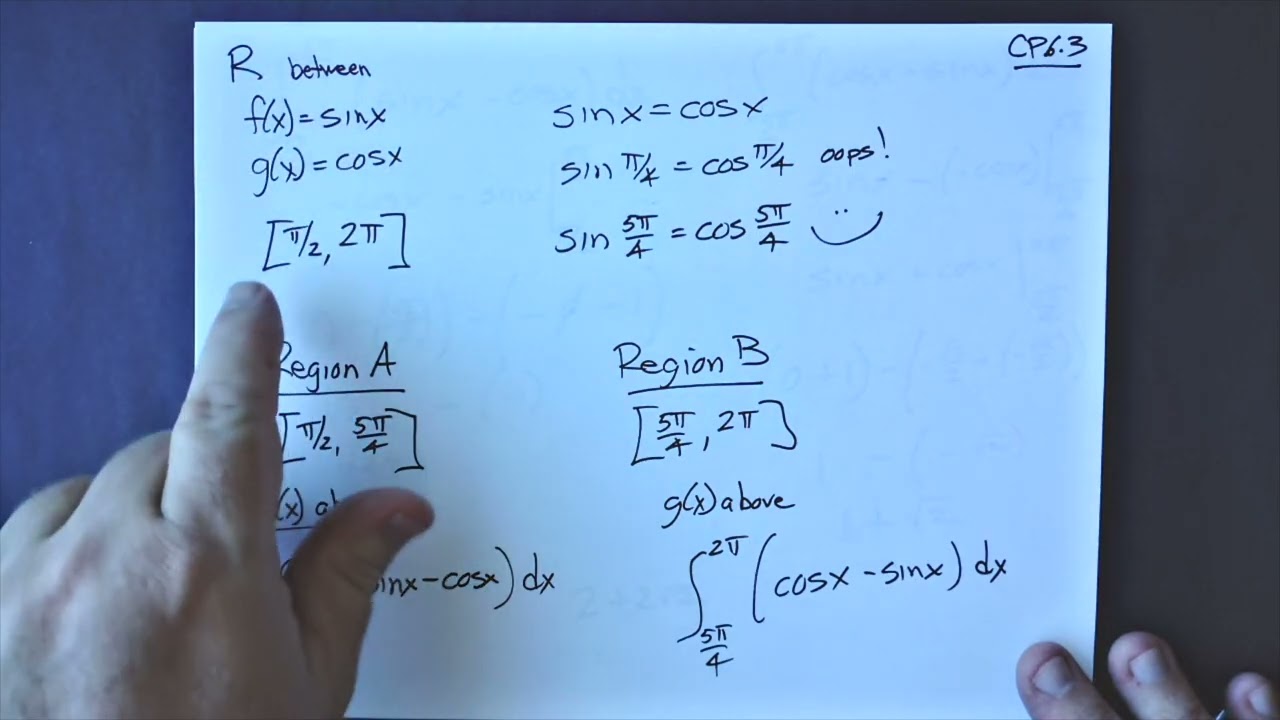 CP6.3
R between
f(x)=sinx
g(x)=cosx
[π/2, 2π]
sinx=cosx
sin π/4 = cos π/4 oops!
sin 5π/4 = cos 5π/4
Region A
[π/2, 5π/4]
(x) ab
sinx-cosx) dx
Region B
[5π/4, 2π]
g(x) above
∫_{5π/4}^{2π} (cosx - sinx) dx